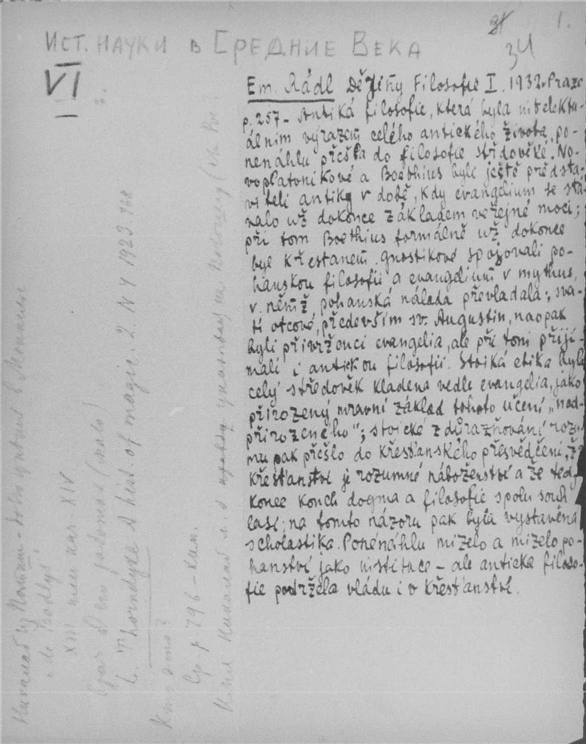 1.
34
Ист. науки в Средние Века
VI
Em. Rádl Dějiny Filosofie I. 1932. Praze
p. 257 – Antiká filosofie, která byla intelektu-
álním výrazem celého antického života, po-
nenáhlu přešla do filosofie středověké. No-
voplatonikové a Boëthius byli ještě předsta-
viteli antiky v době, kdy evangelium se stá-
valo už dokonce základem veřejné moci;
při tom Boëthius formálně už dokonce
byl křestanem. gnostikové spojovali po-
hanskou filosofii a evangelium v mythus,
v němž pohanská nálada převládala; sva-
tí otcové, především sv. Augustin, naopak
byli přívrženci evangelia, ale při tom přijí-
mali i antickou filosofii. Stoiká etika byla
celý středověk kladena vedle evangelia, jako
přirozený mravní základ tohoto učení „nad-
přirozeného“; stoické zdůrazňování rozu-
mu pak přešlo do křesťanského přesvědčení, že
křesťanství je rozumné náboženství a že tedy
konec konců dogma a filosofie spolu souh-
lasí; na tomto názoru pak byla vystavěna
scholastika. Ponenáhlu mizelo a mizelo po-
hanství jako instituce – ale antická filoso-
fie podržela vládu i v křesťanství.
2.
XIII или нач. XIV
L. Thorndyke A hist. of magic. 2. N Y 1923. 768
Кто это?
Ср. p 796 –